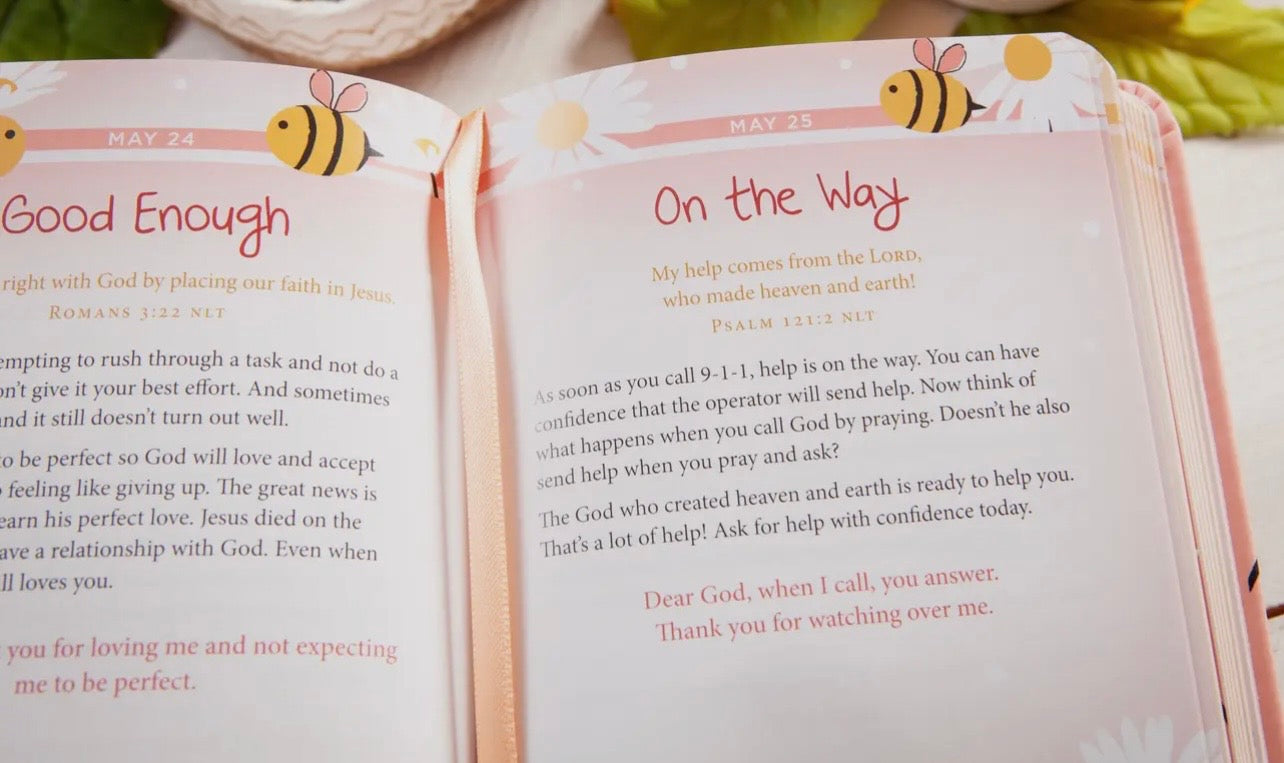 MAY 24
Good Enough
right with God by placing our faith in Jesus.
ROMANS 3:22 NLT
empting to rush through a task and not do a
on't give it your best effort. And sometimes
nd it still doesn't turn out well.
o be perfect so God will love and accept
feeling like giving up. The great news is
earn his perfect love. Jesus died on the
ave a relationship with God. Even when
ll loves you.
you for loving me and not expecting
me to be perfect.
MAY 25
On the Way
My help comes from the LORD,
who made heaven and earth!
PSALM 121:2 NLT
As soon as you call 9-1-1, help is on the way. You can have
confidence that the operator will send help. Now think of
what happens when you call God by praying. Doesn't he also
send help when you pray and ask?
The God who created heaven and earth is ready to help you.
That's a lot of help! Ask for help with confidence today.
Dear God, when I call, you answer.
Thank you for watching over me.